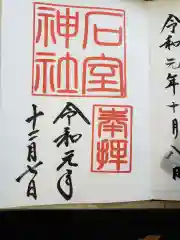 石室
神社
奉拝
令和元年
十二月八日
令和元年十月八日